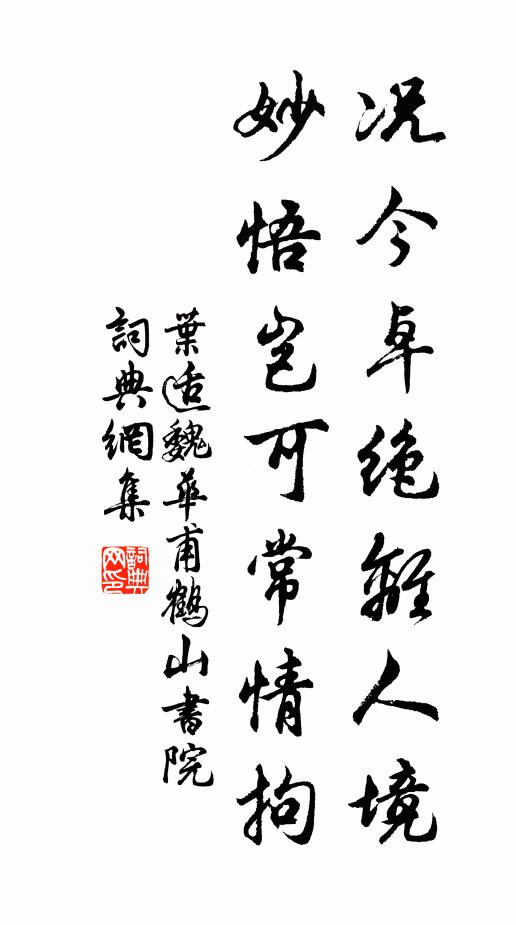 况今卓絶離人境
妙悟豈可常情拘
葉适魏華甫鶴山書院
詞典網集
詞典網印